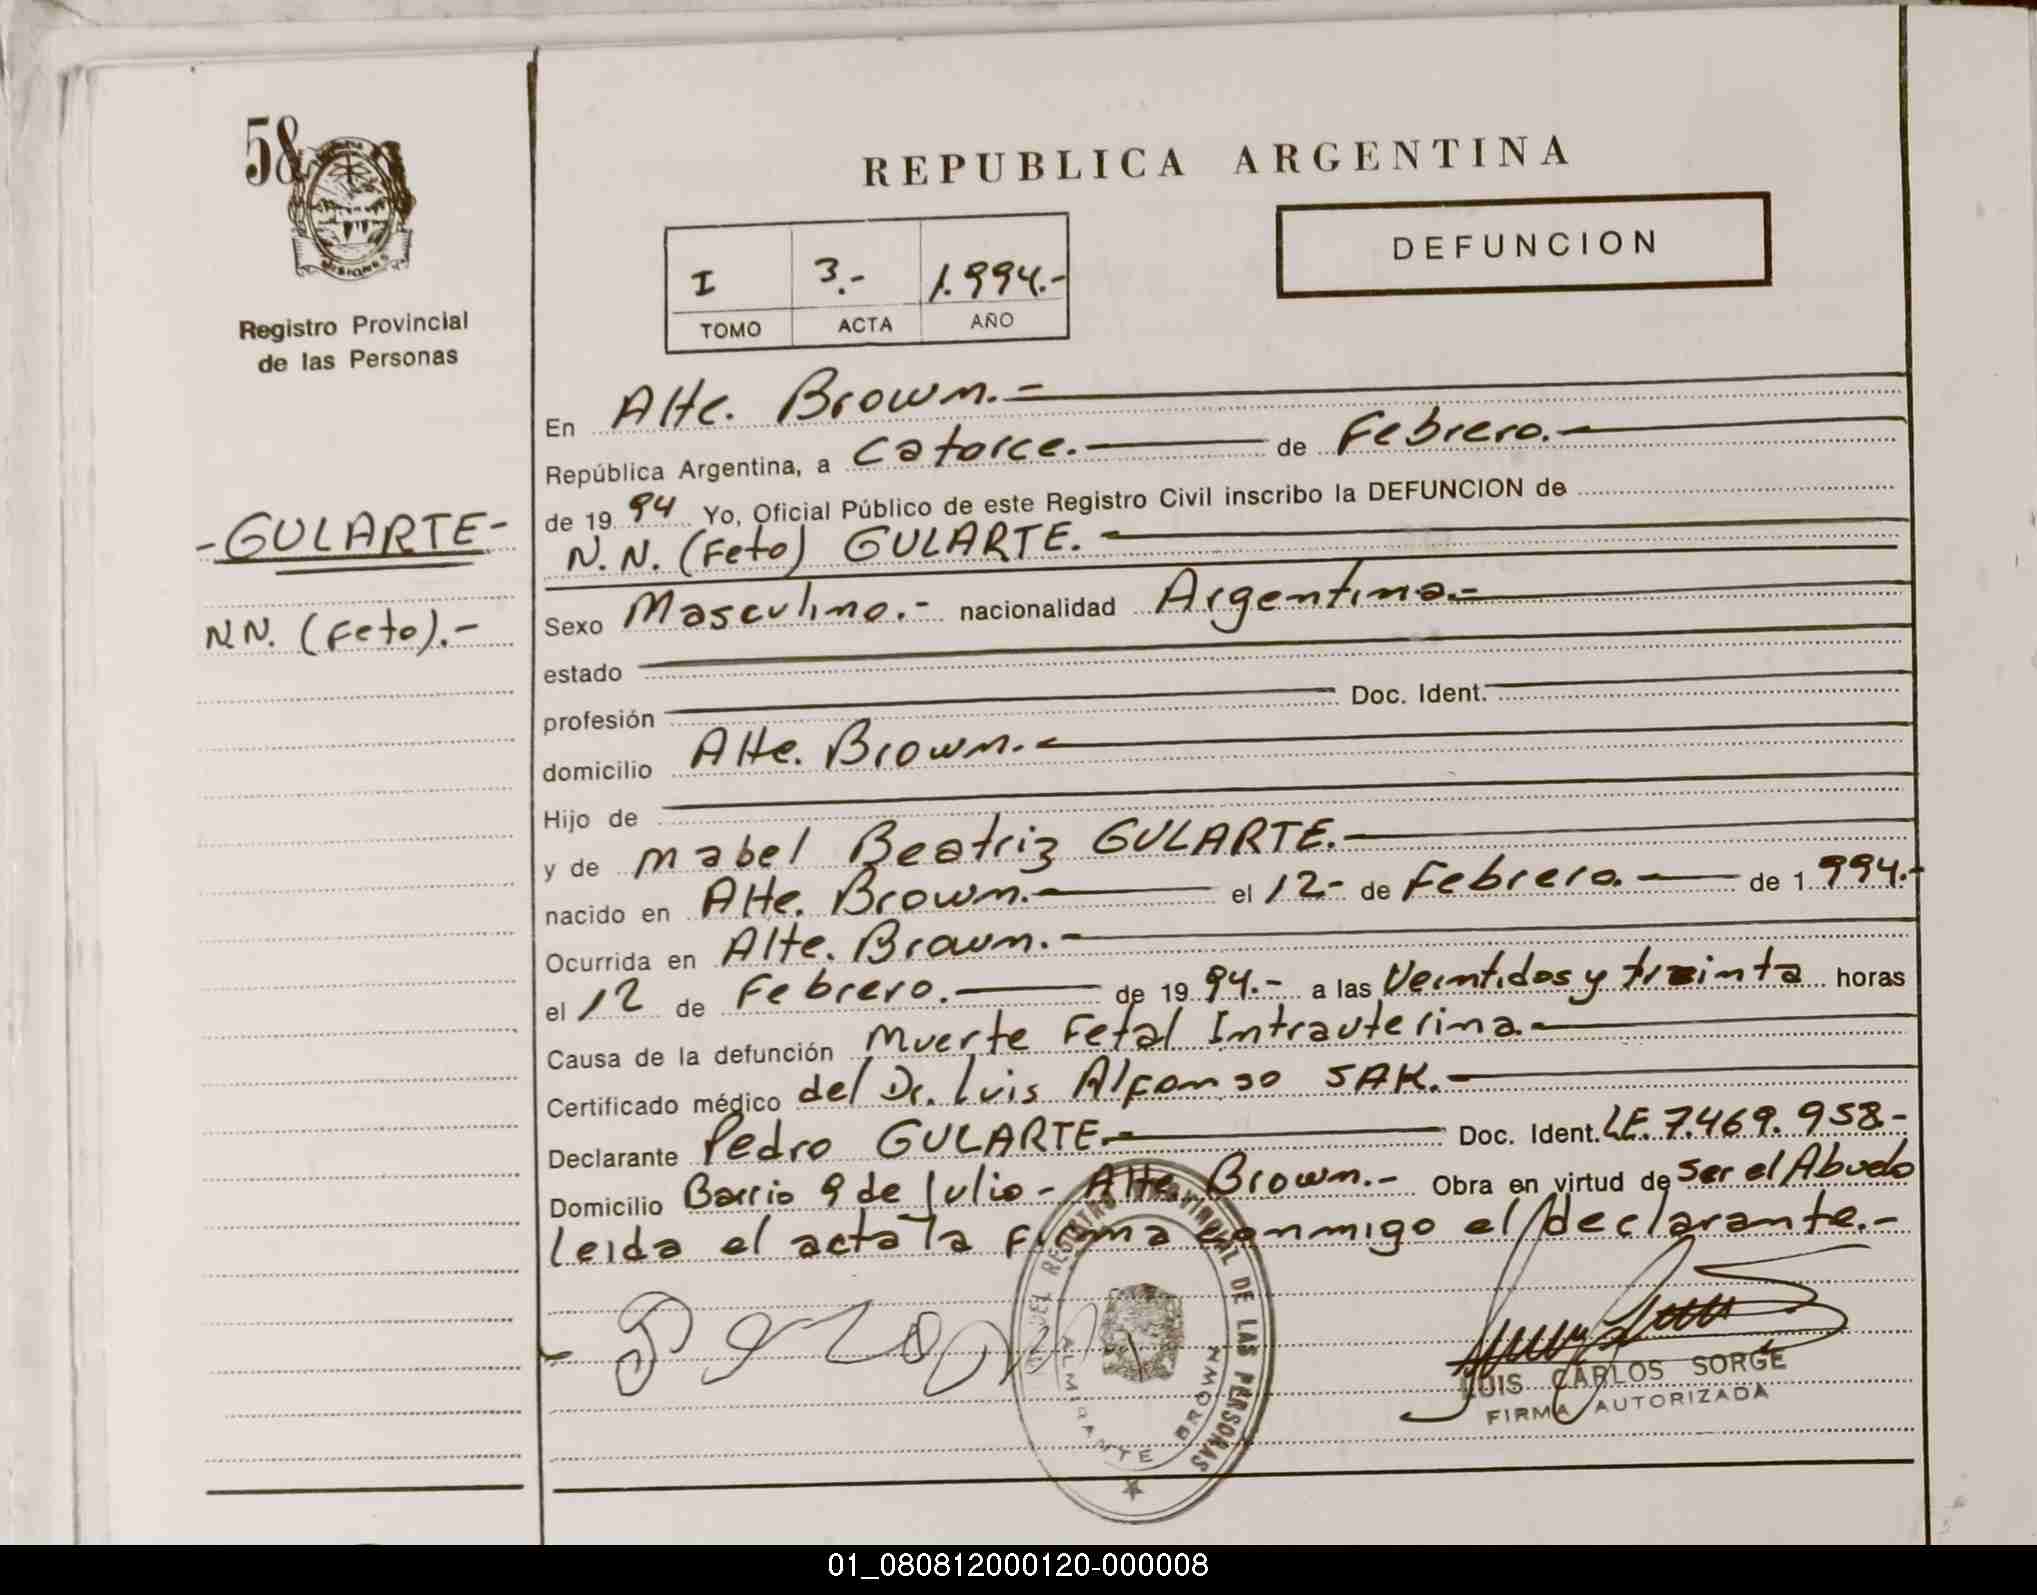 58
MISIONES
Registro Provincial
de las Personas
- GULARTE -
N.N. (Feto).-
REPUBLICA ARGENTINA
DEFUNCION
I 3.- 1.994.-
TOMO ACTA AÑO
En Alte. Brown.-
República Argentina, a Catorce.- de Febrero.-
de 19 94 Yo, Oficial Público de este Registro Civil inscribo la DEFUNCION de
N.N. (Feto) GULARTE.-
Sexo Masculino.- nacionalidad Argentina.-
estado
profesión Doc. Ident.
domicilio Alte. Brown.-
Hijo de
y de Mabel Beatriz GULARTE.-
nacido en Alte. Brown.- el 12.- de Febrero.- de 1 994.-
Ocurrida en Alte. Brown.-
el 12 de Febrero.- de 19 94.- a las Veintidos y treinta horas
Causa de la defunción Muerte Fetal Intrauterina.-
Certificado médico del Dr. Luis Alfonso SAK.-
Declarante Pedro GULARTE.- Doc. Ident. LE. 7.469.958.-
Domicilio Barrio 9 de Julio - Alte. Brown.- Obra en virtud de ser el Abuelo
leida el acta la firma conmigo el declarante.-
REGISTRO PROVINCIAL DE LAS PERSONAS
ALMIRANTE BROWN
LUIS CARLOS SORGE
FIRMA AUTORIZADA
01_080812000120-000008